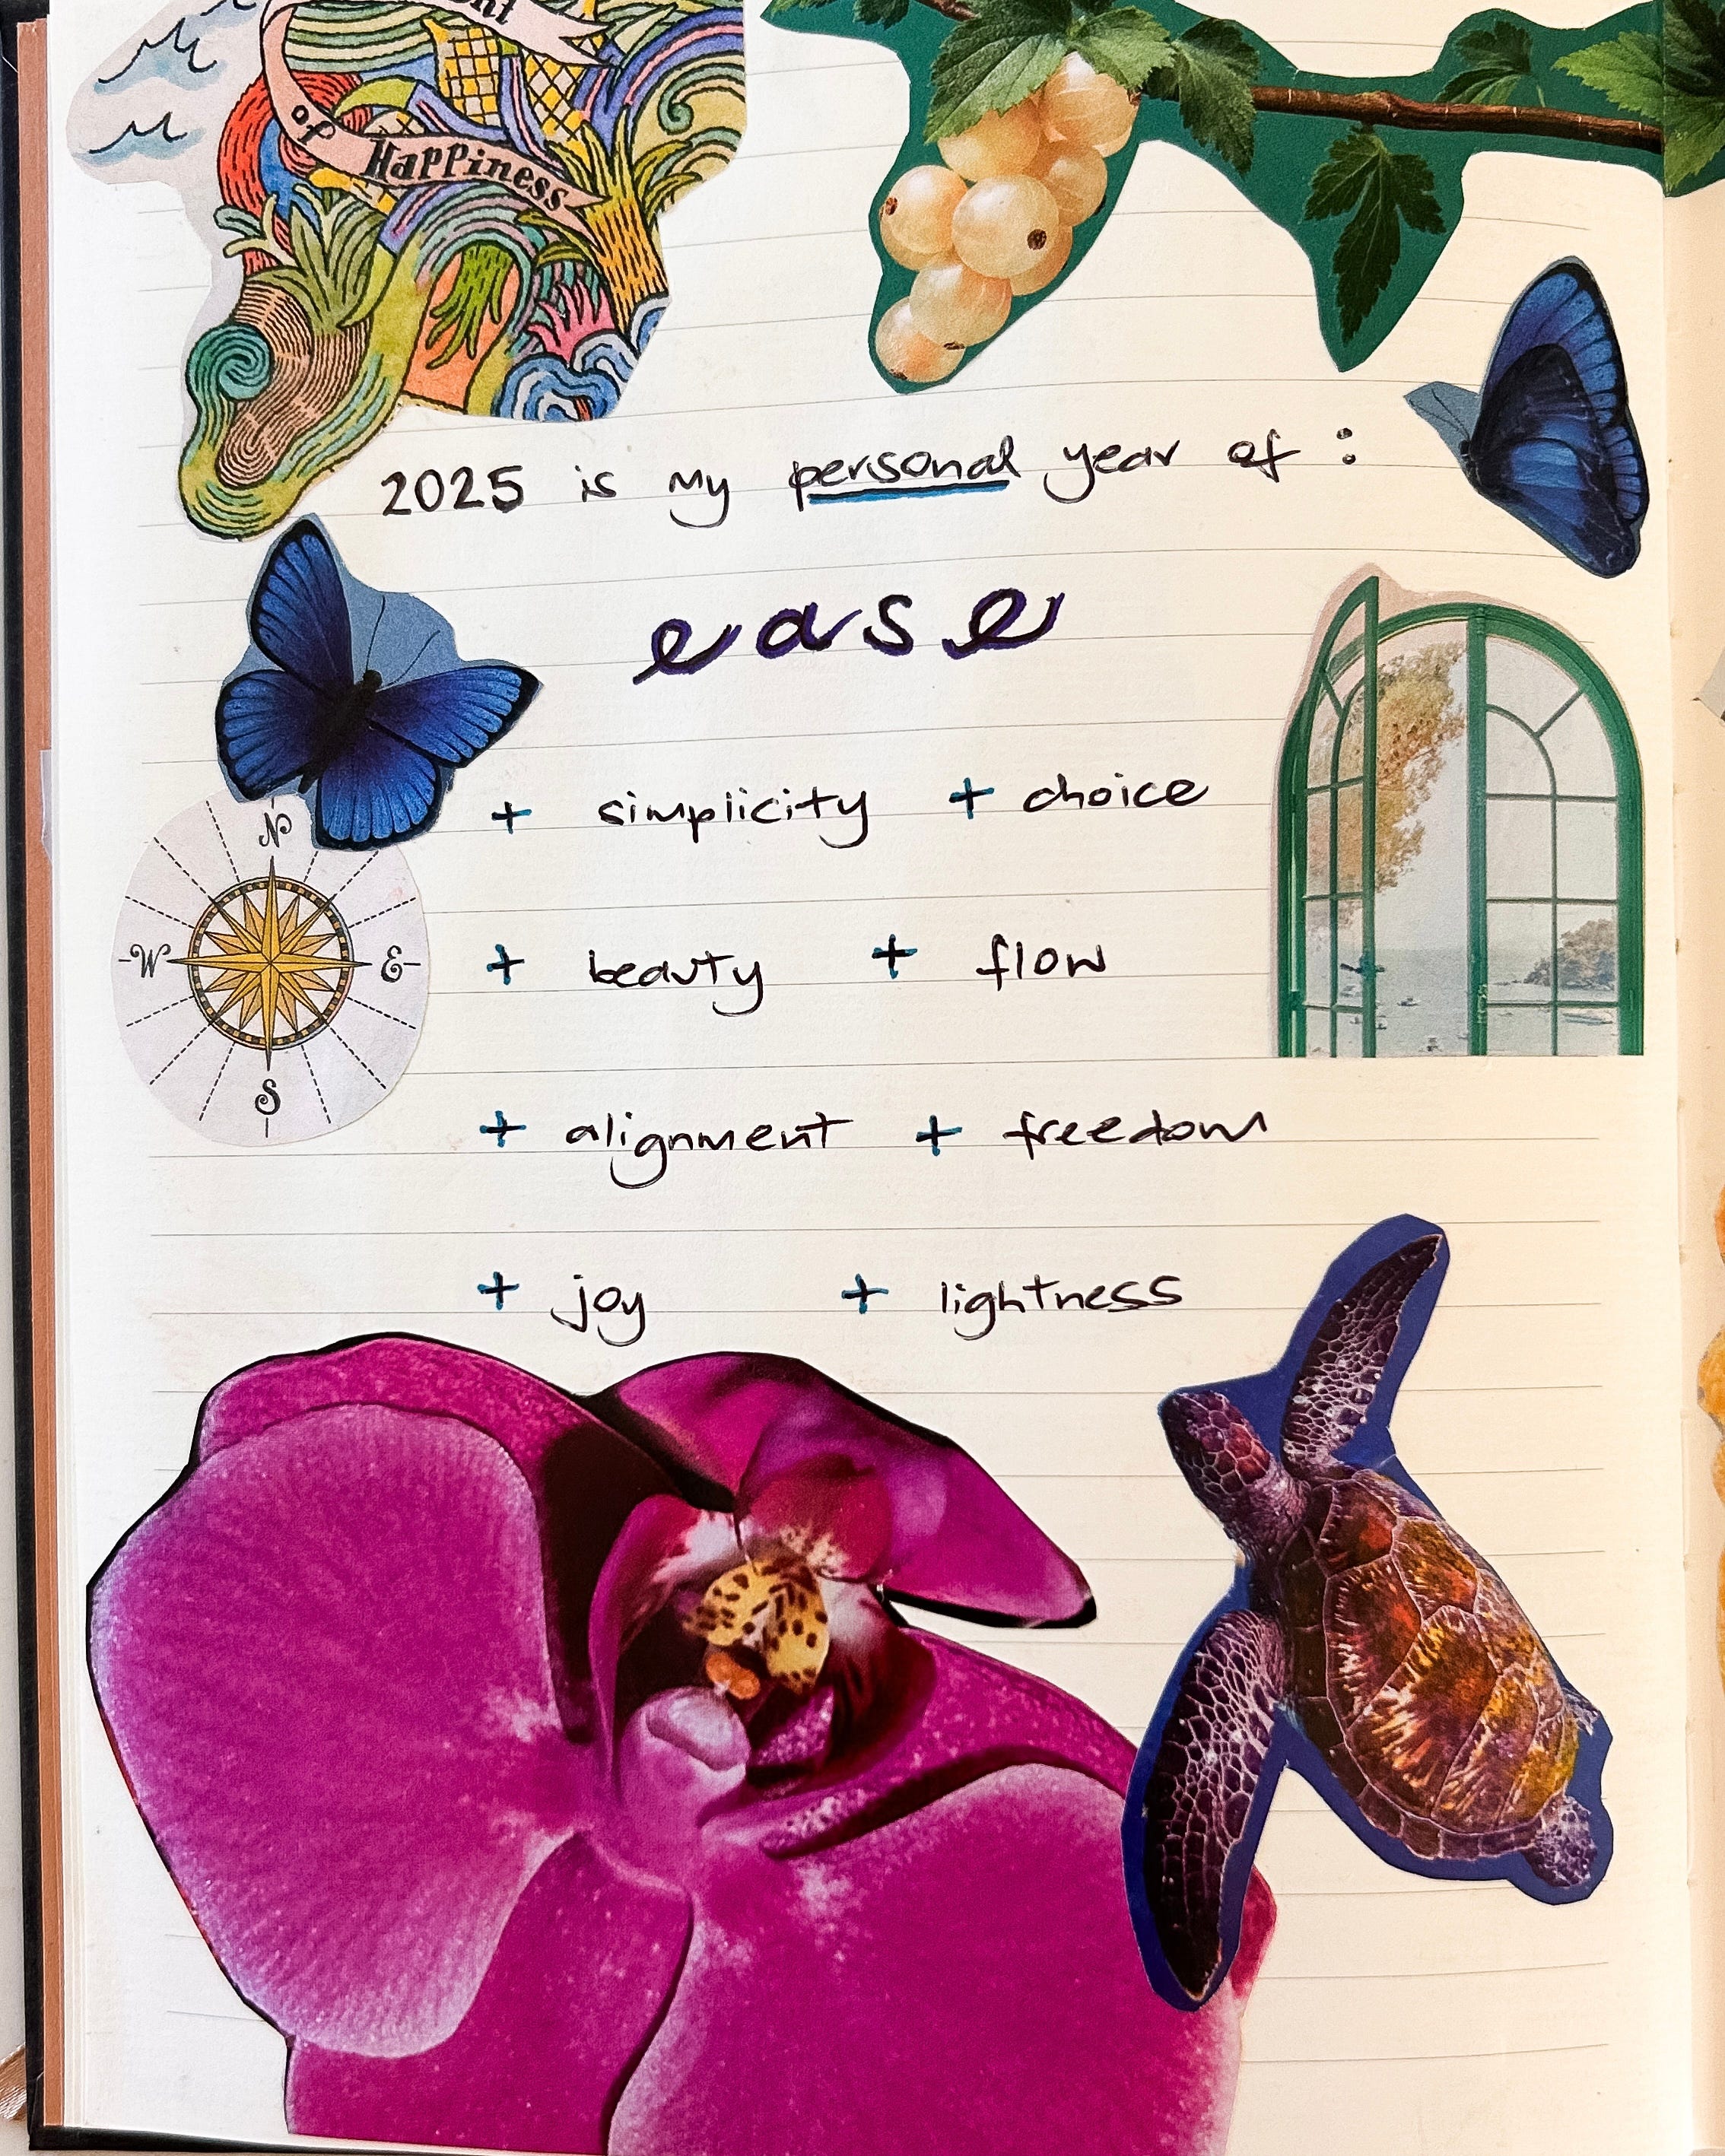 of Happiness
2025 is my personal year of :
ease
+ simplicity + choice
+ beauty + flow
+ alignment + freedom
+ joy + lightness
N
W E
S